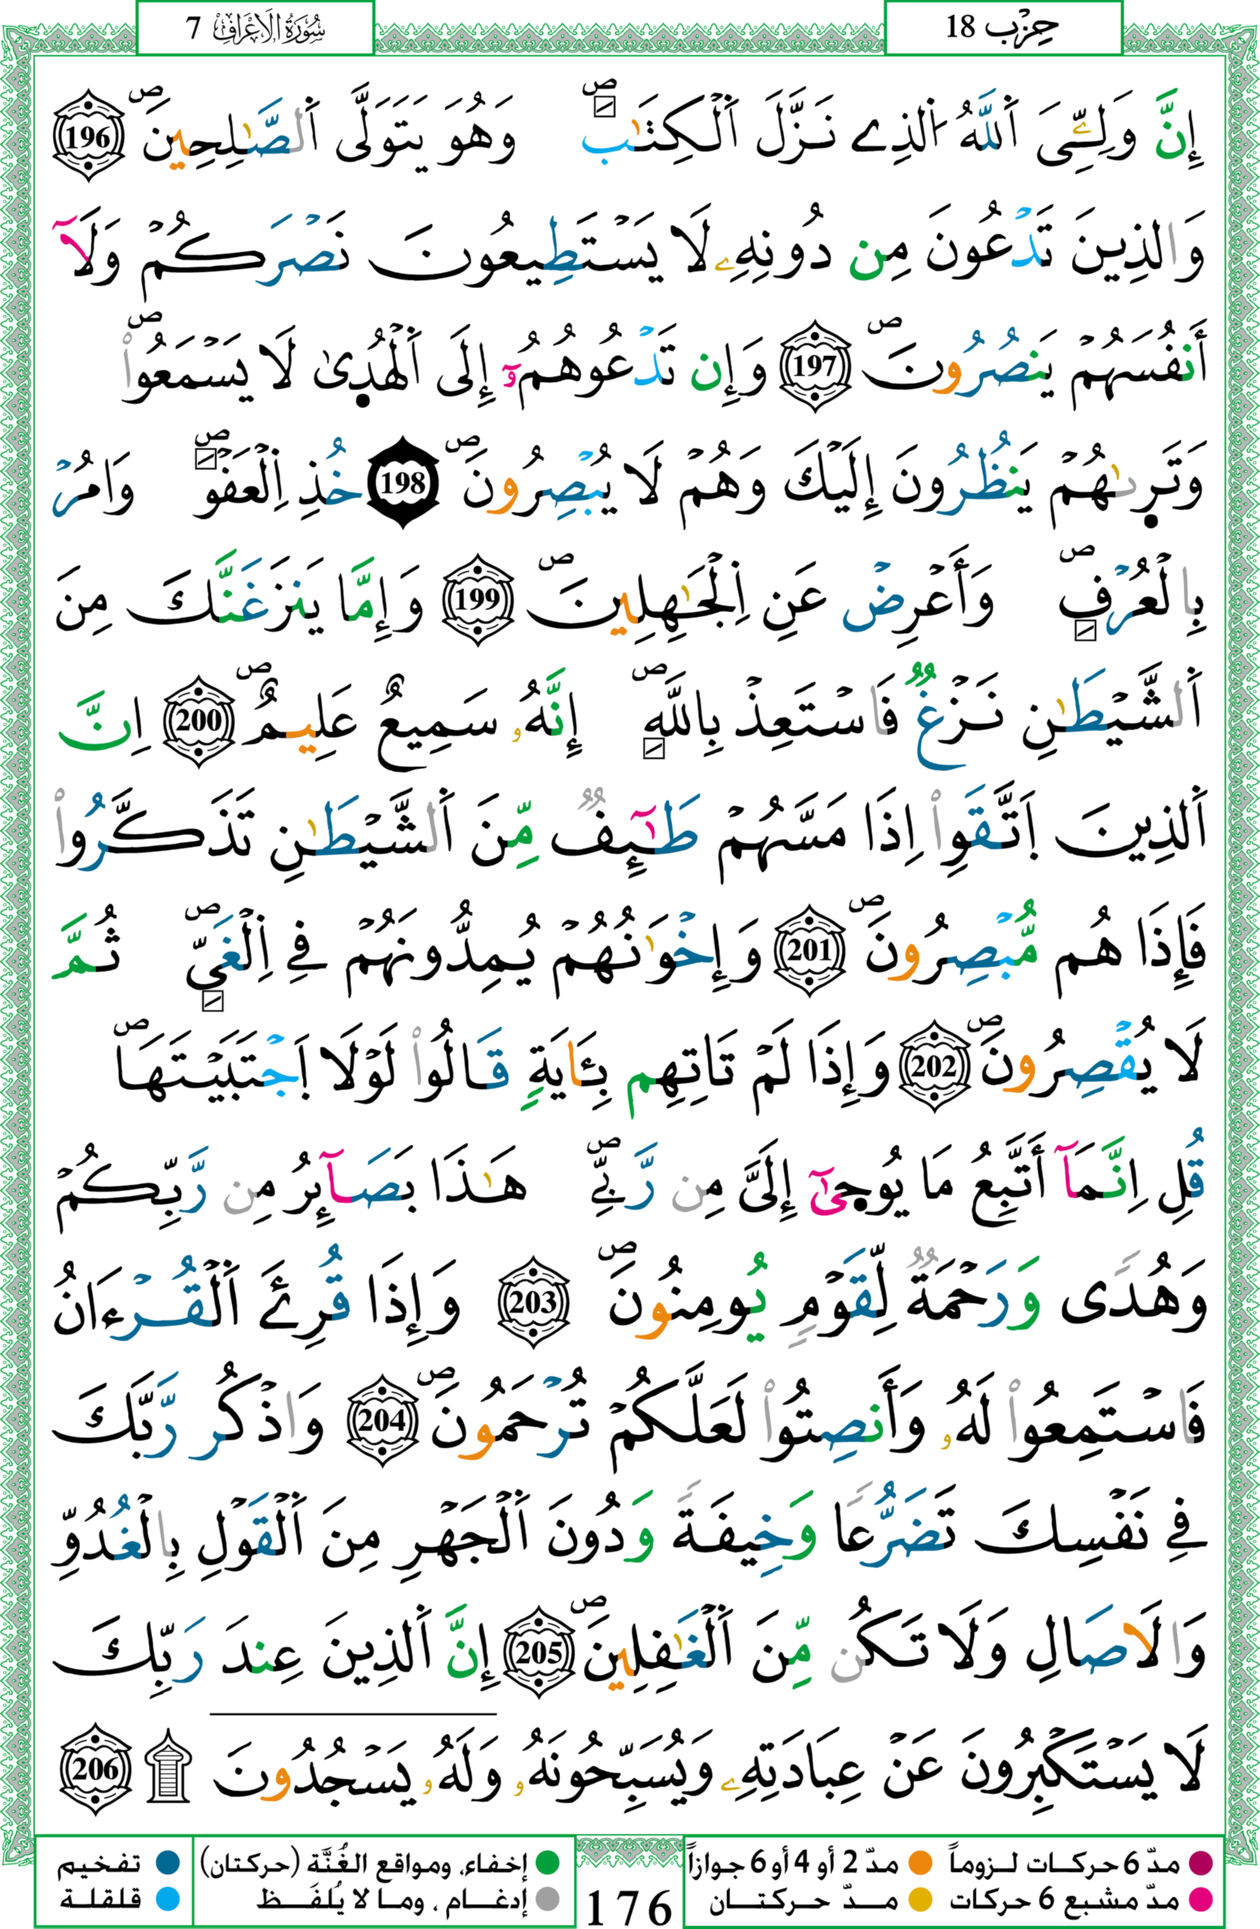 حِزْب 18
سُورَةُ الأَعْرَافِ 7
إِنَّ وَلِـِّۧيَ اَ۬للَّهُ اُ۬لذِے نَزَّلَ اَ۬لْكِتَٰبَۖ وَهُوَ يَتَوَلَّى اَ۬لصَّٰلِحِينَۖ 196
وَالذِينَ تَدْعُونَ مِن دُونِهِۦ لَا يَسْتَطِيعُونَ نَصْرَكُمْ وَلَآ
أَنفُسَهُمْ يَنصُرُونَۖ 197 وَإِن تَدْعُوهُمُۥٓ إِلَى اَ۬لْهُد۪ىٰ لَا يَسْمَعُواْۖ
وَتَر۪ىٰهُمْ يَنظُرُونَ إِلَيْكَ وَهُمْ لَا يُبْصِرُونَۖ 198 خُذِ اِ۬لْعَفْوَۖ وَامُرْ
بِالْعُرْفِۖ وَأَعْرِضْ عَنِ اِ۬لْجَٰهِلِينَۖ 199 وَإِمَّا يَنزَغَنَّكَ مِنَ
اَ۬لشَّيْطَٰنِ نَزْغٌ فَاسْتَعِذْ بِاللَّهِۖ إِنَّهُۥ سَمِيعٌ عَلِيمٌۖ 200 اِنَّ
اَ۬لذِينَ اَ۪تَّقَوِاْ اِذَا مَسَّهُمْ طَٰٓئِفٌ مِّنَ اَ۬لشَّيْطَٰنِ تَذَكَّرُواْ
فَإِذَا هُم مُّبْصِرُونَۖ 201 وَإِخْوَٰنُهُمْ يُمِدُّونَهُمْ فِے اِ۬لْغَيِّۖ ثُمَّ
لَا يُقْصِرُونَۖ 202 وَإِذَا لَمْ تَاتِهِم بِـَٔايَةٍ قَالُواْ لَوْلَا اَ۪جْتَبَيْتَهَاۖ
قُلِ اِنَّمَآ أَتَّبِعُ مَا يُوح۪ىٰٓ إِلَىَّ مِن رَّبِّےۖ هَٰذَا بَصَآئِرُ مِن رَّبِّكُمْ
وَهُدًى وَرَحْمَةٌ لِّقَوْمٍ يُومِنُونَۖ 203 وَإِذَا قُرِئَ اَ۬لْقُرْءَانُ
فَاسْتَمِعُواْ لَهُۥ وَأَنصِتُواْ لَعَلَّكُمْ تُرْحَمُونَۖ 204 وَاذْكُر رَّبَّكَ
فِے نَفْسِكَ تَضَرُّعًا وَخِيفَةً وَدُونَ اَ۬لْجَهْرِ مِنَ اَ۬لْقَوْلِ بِالْغُدُوِّ
وَالَاصَالِ وَلَا تَكُن مِّنَ اَ۬لْغَٰفِلِينَۖ 205 إِنَّ اَ۬لذِينَ عِندَ رَبِّكَ
لَا يَسْتَكْبِرُونَ عَنْ عِبَادَتِهِۦ وَيُسَبِّحُونَهُۥ وَلَهُۥ يَسْجُدُونَ ۩ 206
مدّ 6 حركات لـزوماً مدّ 2 أو 4 أو 6 جوازاً
مدّ مشبع 6 حركات مـدّ حركتـان
176
إخفاء، ومواقع الغُنَّة (حركتان) تفخيم
إدغـام ، ومـا لا يُلفَـظ قلقلة